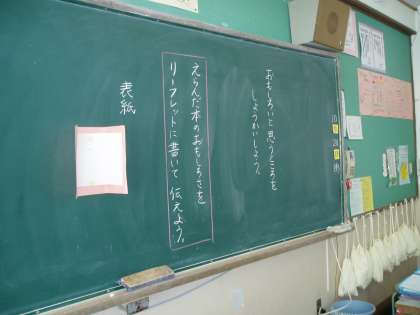 おもしろいと思うところを
しょうかいしよう。
えらんだ本のおもしろさを
リーフレットに書いて伝えよう。
表紙